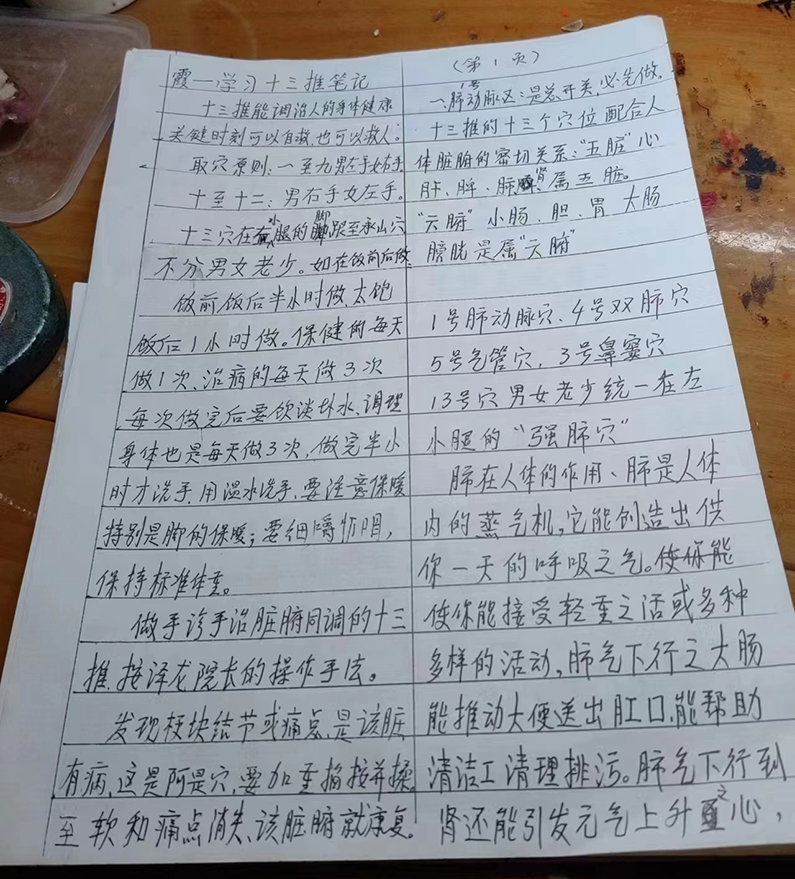 霞一学习十三推笔记
十三推能调治人的身体健康
关键时刻可以自救也可以救人;
取穴原则:一至九男左手女右手
十至十二:男右手女左手。
十三穴在小腿的脚跟至承山穴
不分男女老少。如在饭前后做
饭前饭后半小时做太饱
饭后1小时做。保健的每天
做1次、治病的每天做3次
每次做完后要饮淡盐水、调理
身体也是每天做3次,做完半小
时才洗手、用温水洗手、要注意保暖
特别是脚的保暖;要细嚼
保持标准体重。
做手诊手治脏腑同调的十三
推、按泽龙院长的操作手法。
发现梗块结节或痛点、是该脏
有病、这是阿是穴、要加重掐按并揉
至软和痛点消失、该脏腑就康复。
(第1页)
一、1号肺动脉区:是总开关、必先做。
十三推的十三个穴位配合人
体脏腑的密切关系:“五脏”心
肝、脾、肺、肾属五脏。
“六腑”小肠、胆、胃、大肠
膀胱是属“六腑”
1号肺动脉穴、4号双肺穴
5号气管穴、3号鼻窦穴
13号穴男女老少统一在左
小腿的“强肺穴”
肺在人体的作用、肺是人体
内的蒸气机,它能创造出供
你一天的呼吸之气。使你能
使你能接受轻重之活或多种
多样的活动,肺气下行之大肠
能推动大便送出肛口,能帮助
清洁工清理排污。肺气下行到
肾还能引发元气上升至之心,